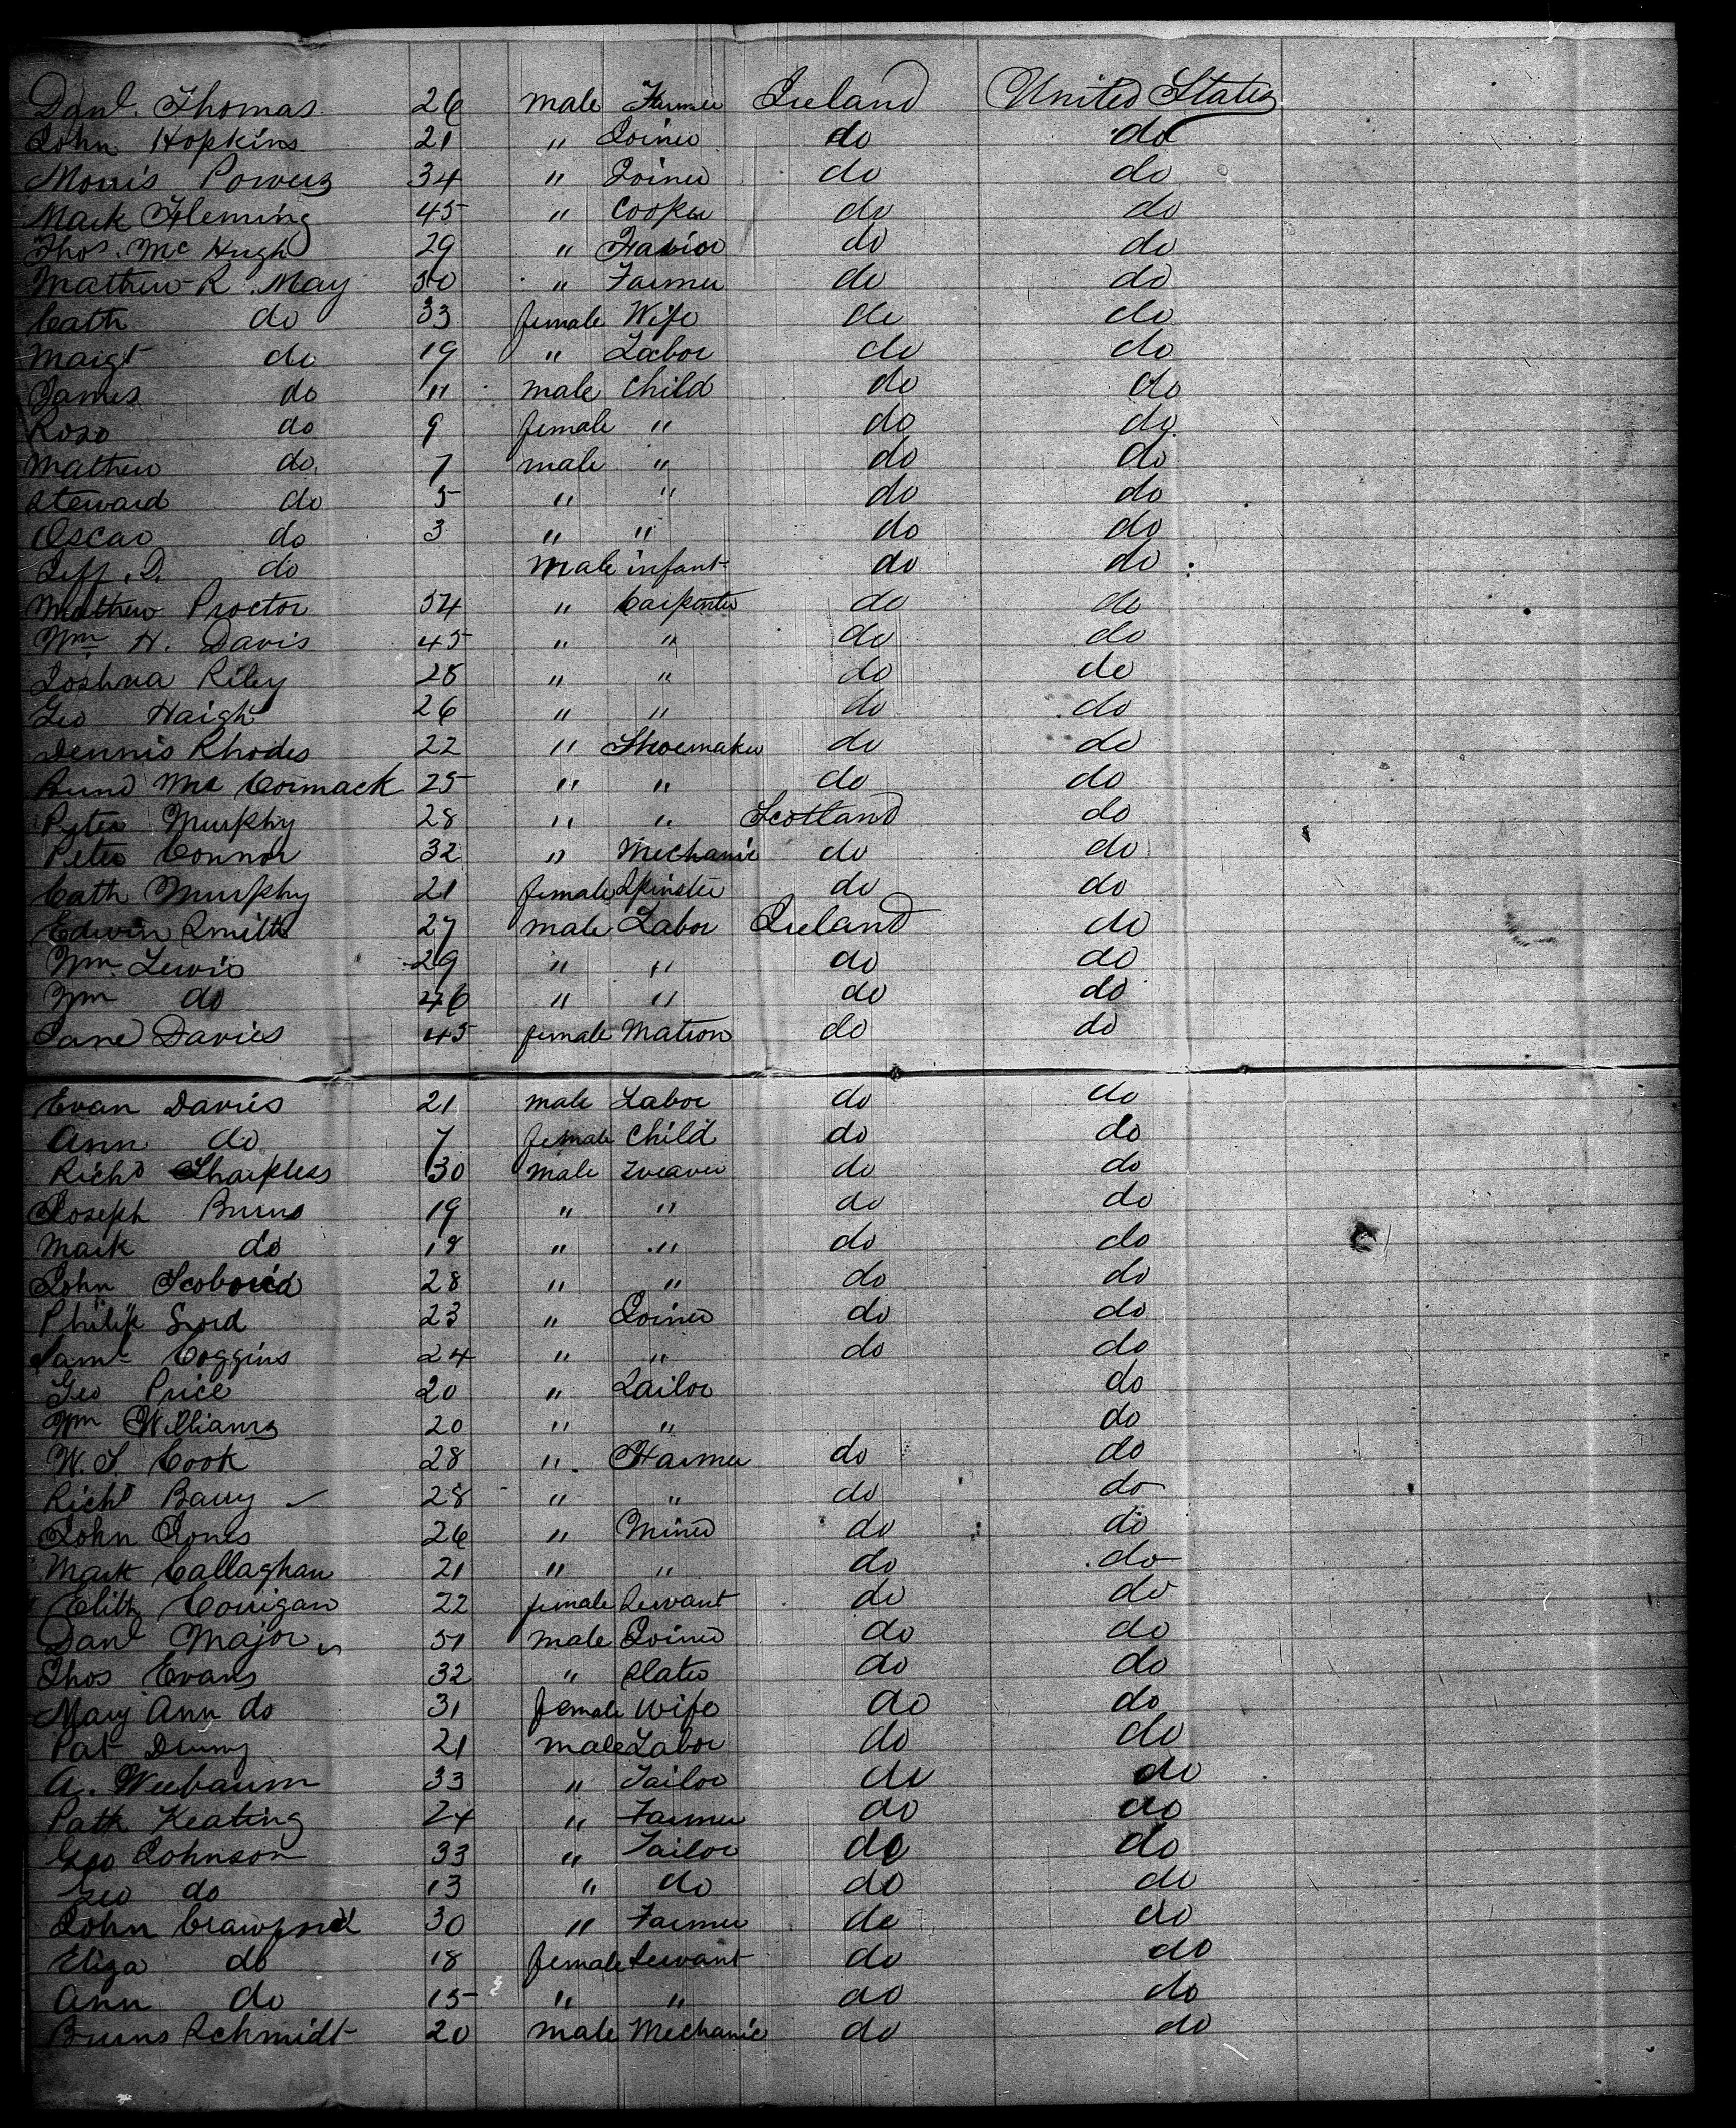 Danl. Thomas 26 male Farmer Ireland United States
John Hopkins 21 " Joiner do do
Morris Powers 34 " Joiner do do
Mark Fleming 45 " Cooper do do
Thos. Mc Hugh 29 " do do
Mathew R. May 50 " Farmer do do
Cath do 33 female Wife do do
Margt do 19 " Labor do do
James do 11 male Child do do
Rose do 9 female " do do
Mathew do 7 male " do do
Steward do 5 " " do do
Oscar do 3 " " do do
Jeff. D. do male infant do do
Mathew Proctor 54 " Carpenter do do
Wm H. Davis 45 " " do do
Joshua Riley 28 " " do do
Geo Haigh 26 " " do do
Dennis Rhodes 22 " Shoemaker do do
Mc Cormack 25 " " do do
Peter Murphy 28 " " Scotland do
Peter Connor 32 " Mechanic do do
Cath Murphy 21 female Spinster do do
Edwin Smith 27 male Labor Ireland do
Wm. Lewis 29 " " do do
Wm do 46 " " do do
Jane Davies 45 female Matron do do
Evan Davies 21 male Labor do do
Ann do 7 female Child do do
Richd Sharpless 30 male weaver do do
Joseph Burns 19 " " do do
Mark do 18 " " do do
John 28 " " do do
Philip 23 " Joiner do do
Saml Coggins 24 " " do do
Geo Price 20 " Tailor do
Wm Williams 20 " " do
W. S. Cook 28 " Farmer do do
Richd Barry 28 " " do do
John Jones 26 " Miner do do
Mark Callaghan 21 " " do do
Elibh Corrigan 22 female Servant do do
Danl Major 51 male Joiner do do
Thos Evans 32 " Slater do do
Mary Ann do 31 female Wife do do
Pat 21 male Labor do do
A. Weebaum 33 " Tailor do do
Patk Keating 24 " Farmer do do
Geo Johnson 33 " Tailor do do
Geo do 13 " do do do
John Crawford 30 " Farmer do do
Eliza do 18 female Servant do do
Ann do 15 " " do do
Burns Schmidt 20 male Mechanic do do